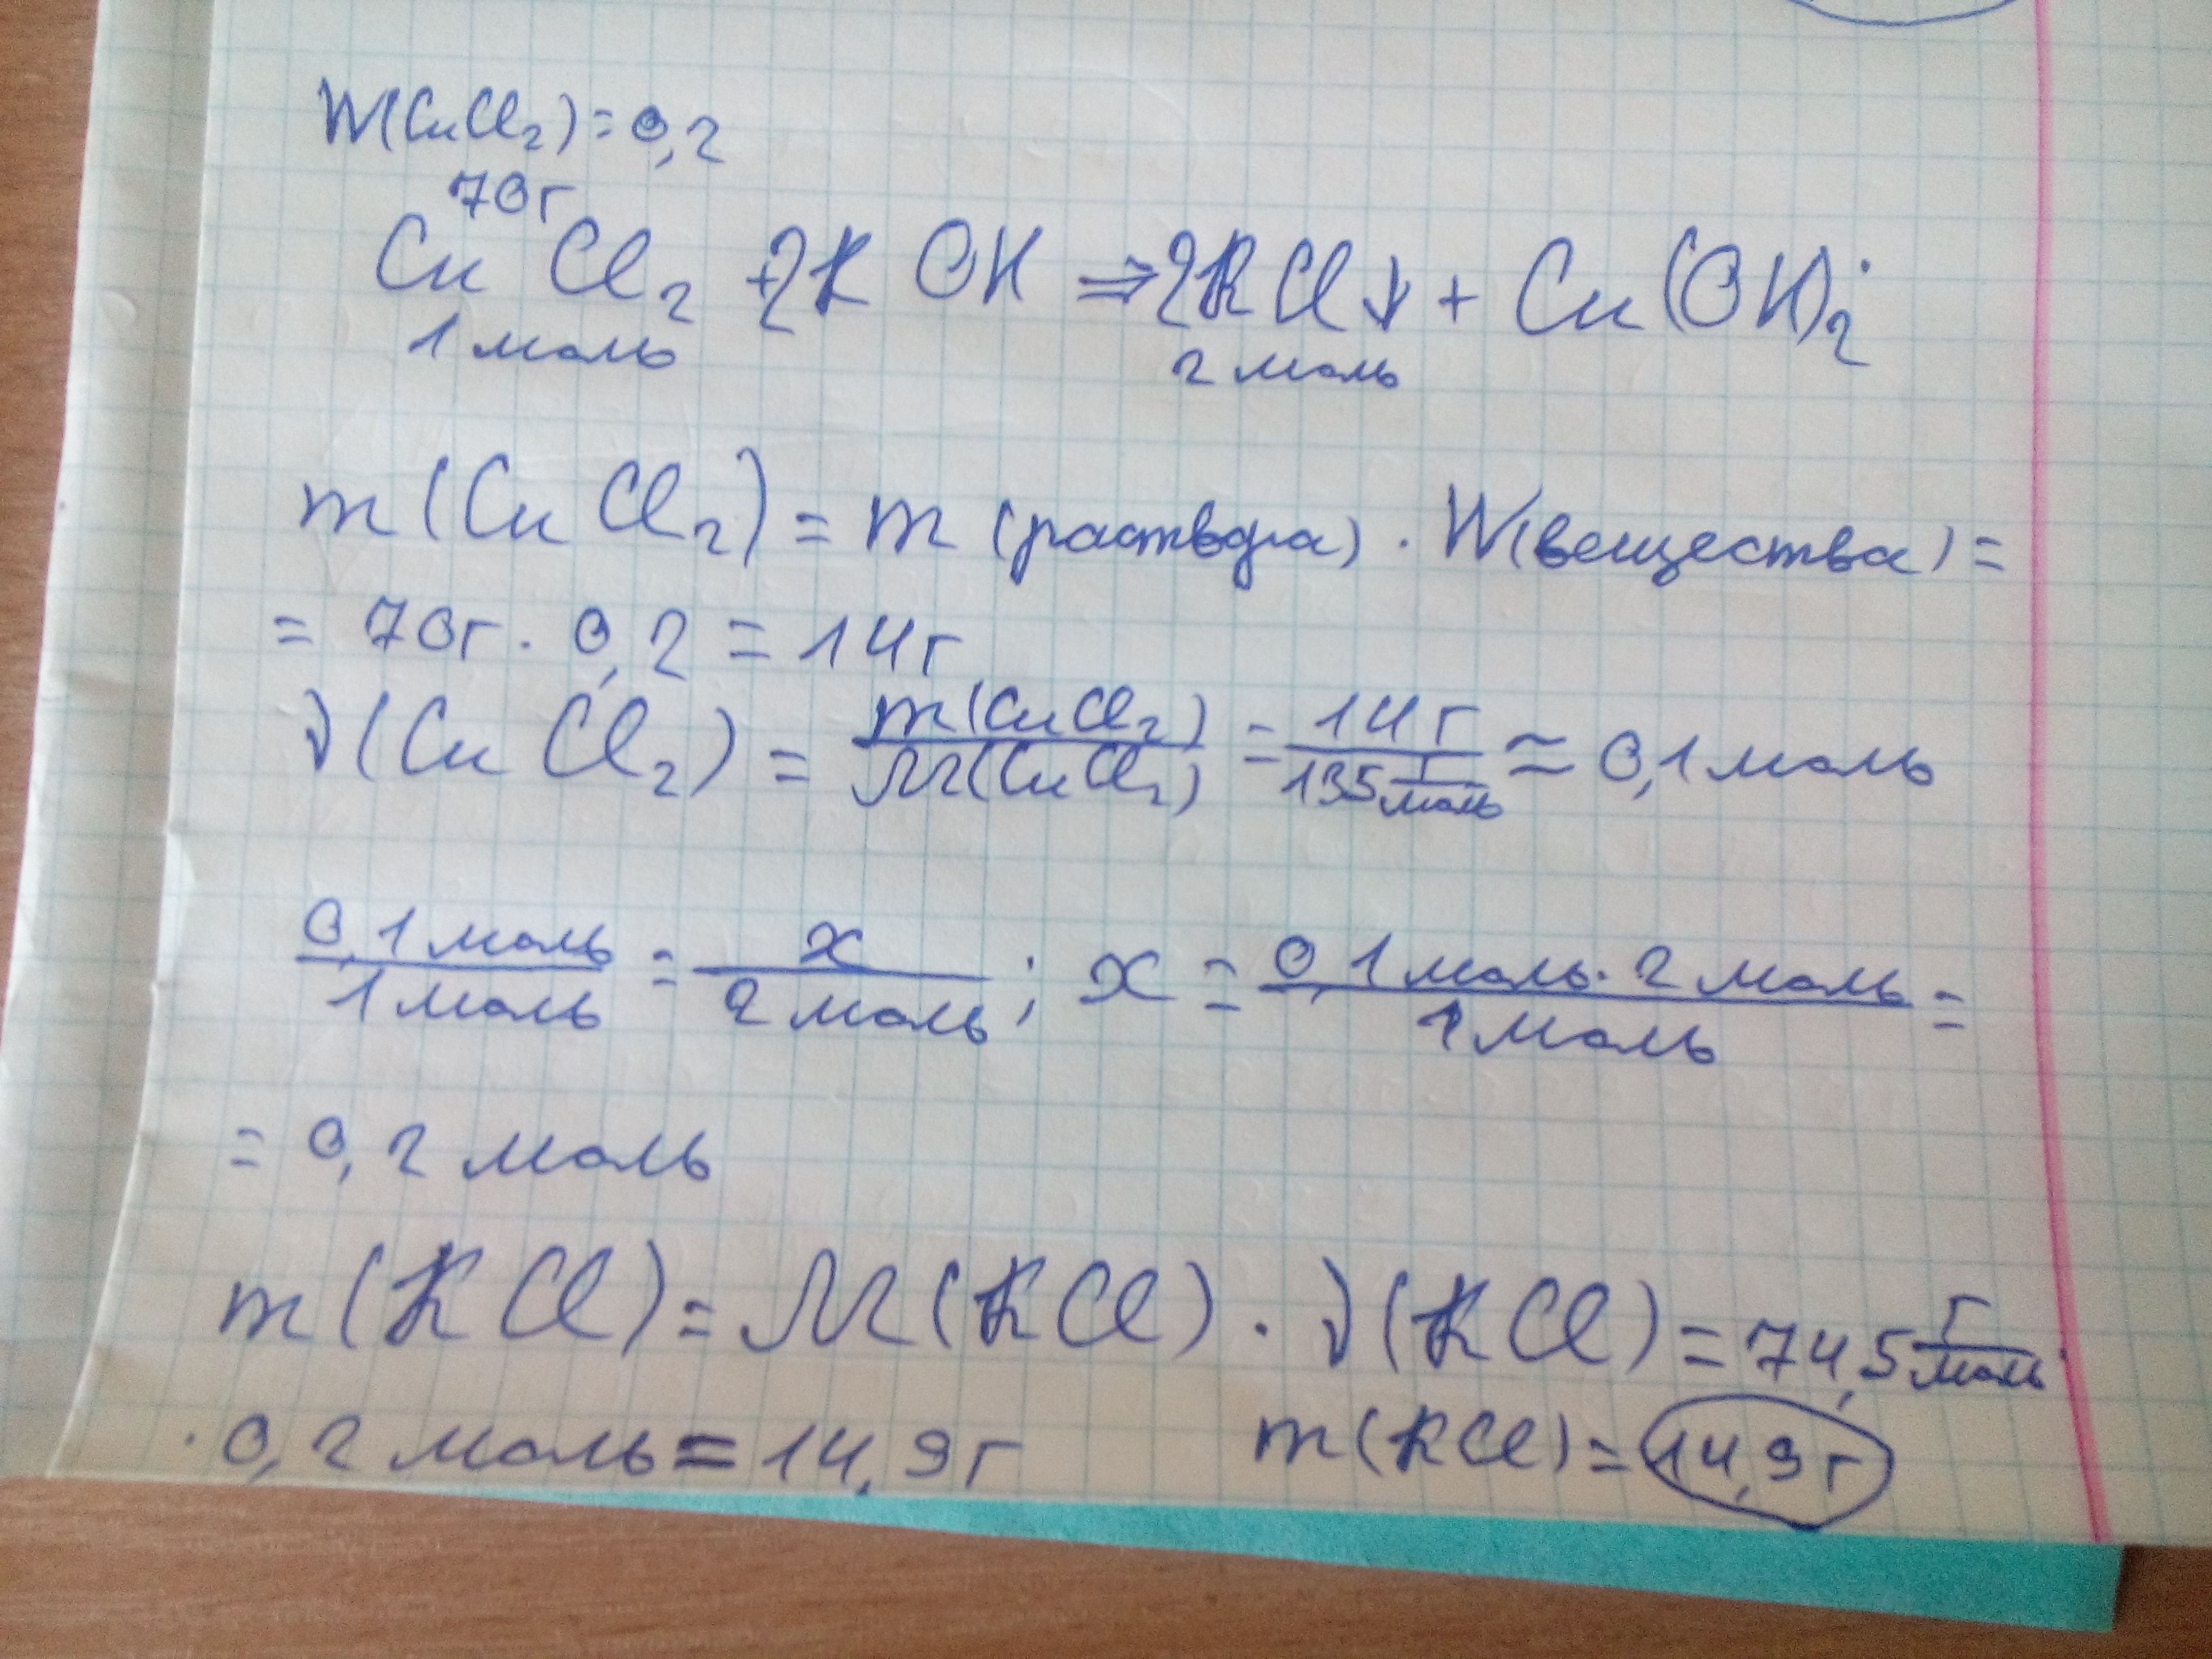 W(CuCl₂)=0,2
70г
CuCl₂ + 2KOH ⇒ 2KCl↓ + Cu(OH)₂
1 моль 2 моль
m(CuCl₂) = m(раствора) · W(вещества) =
= 70г · 0,2 = 14г
ν(CuCl₂) = m(CuCl₂)/M(CuCl₂) = 14г/135 г/моль ≈ 0,1 моль
0,1 моль/1 моль = x/2 моль; x = 0,1 моль · 2 моль/1 моль =
= 0,2 моль
m(KCl) = M(KCl) · ν(KCl) = 74,5 г/моль ·
· 0,2 моль = 14,9г m(KCl) = 14,9г